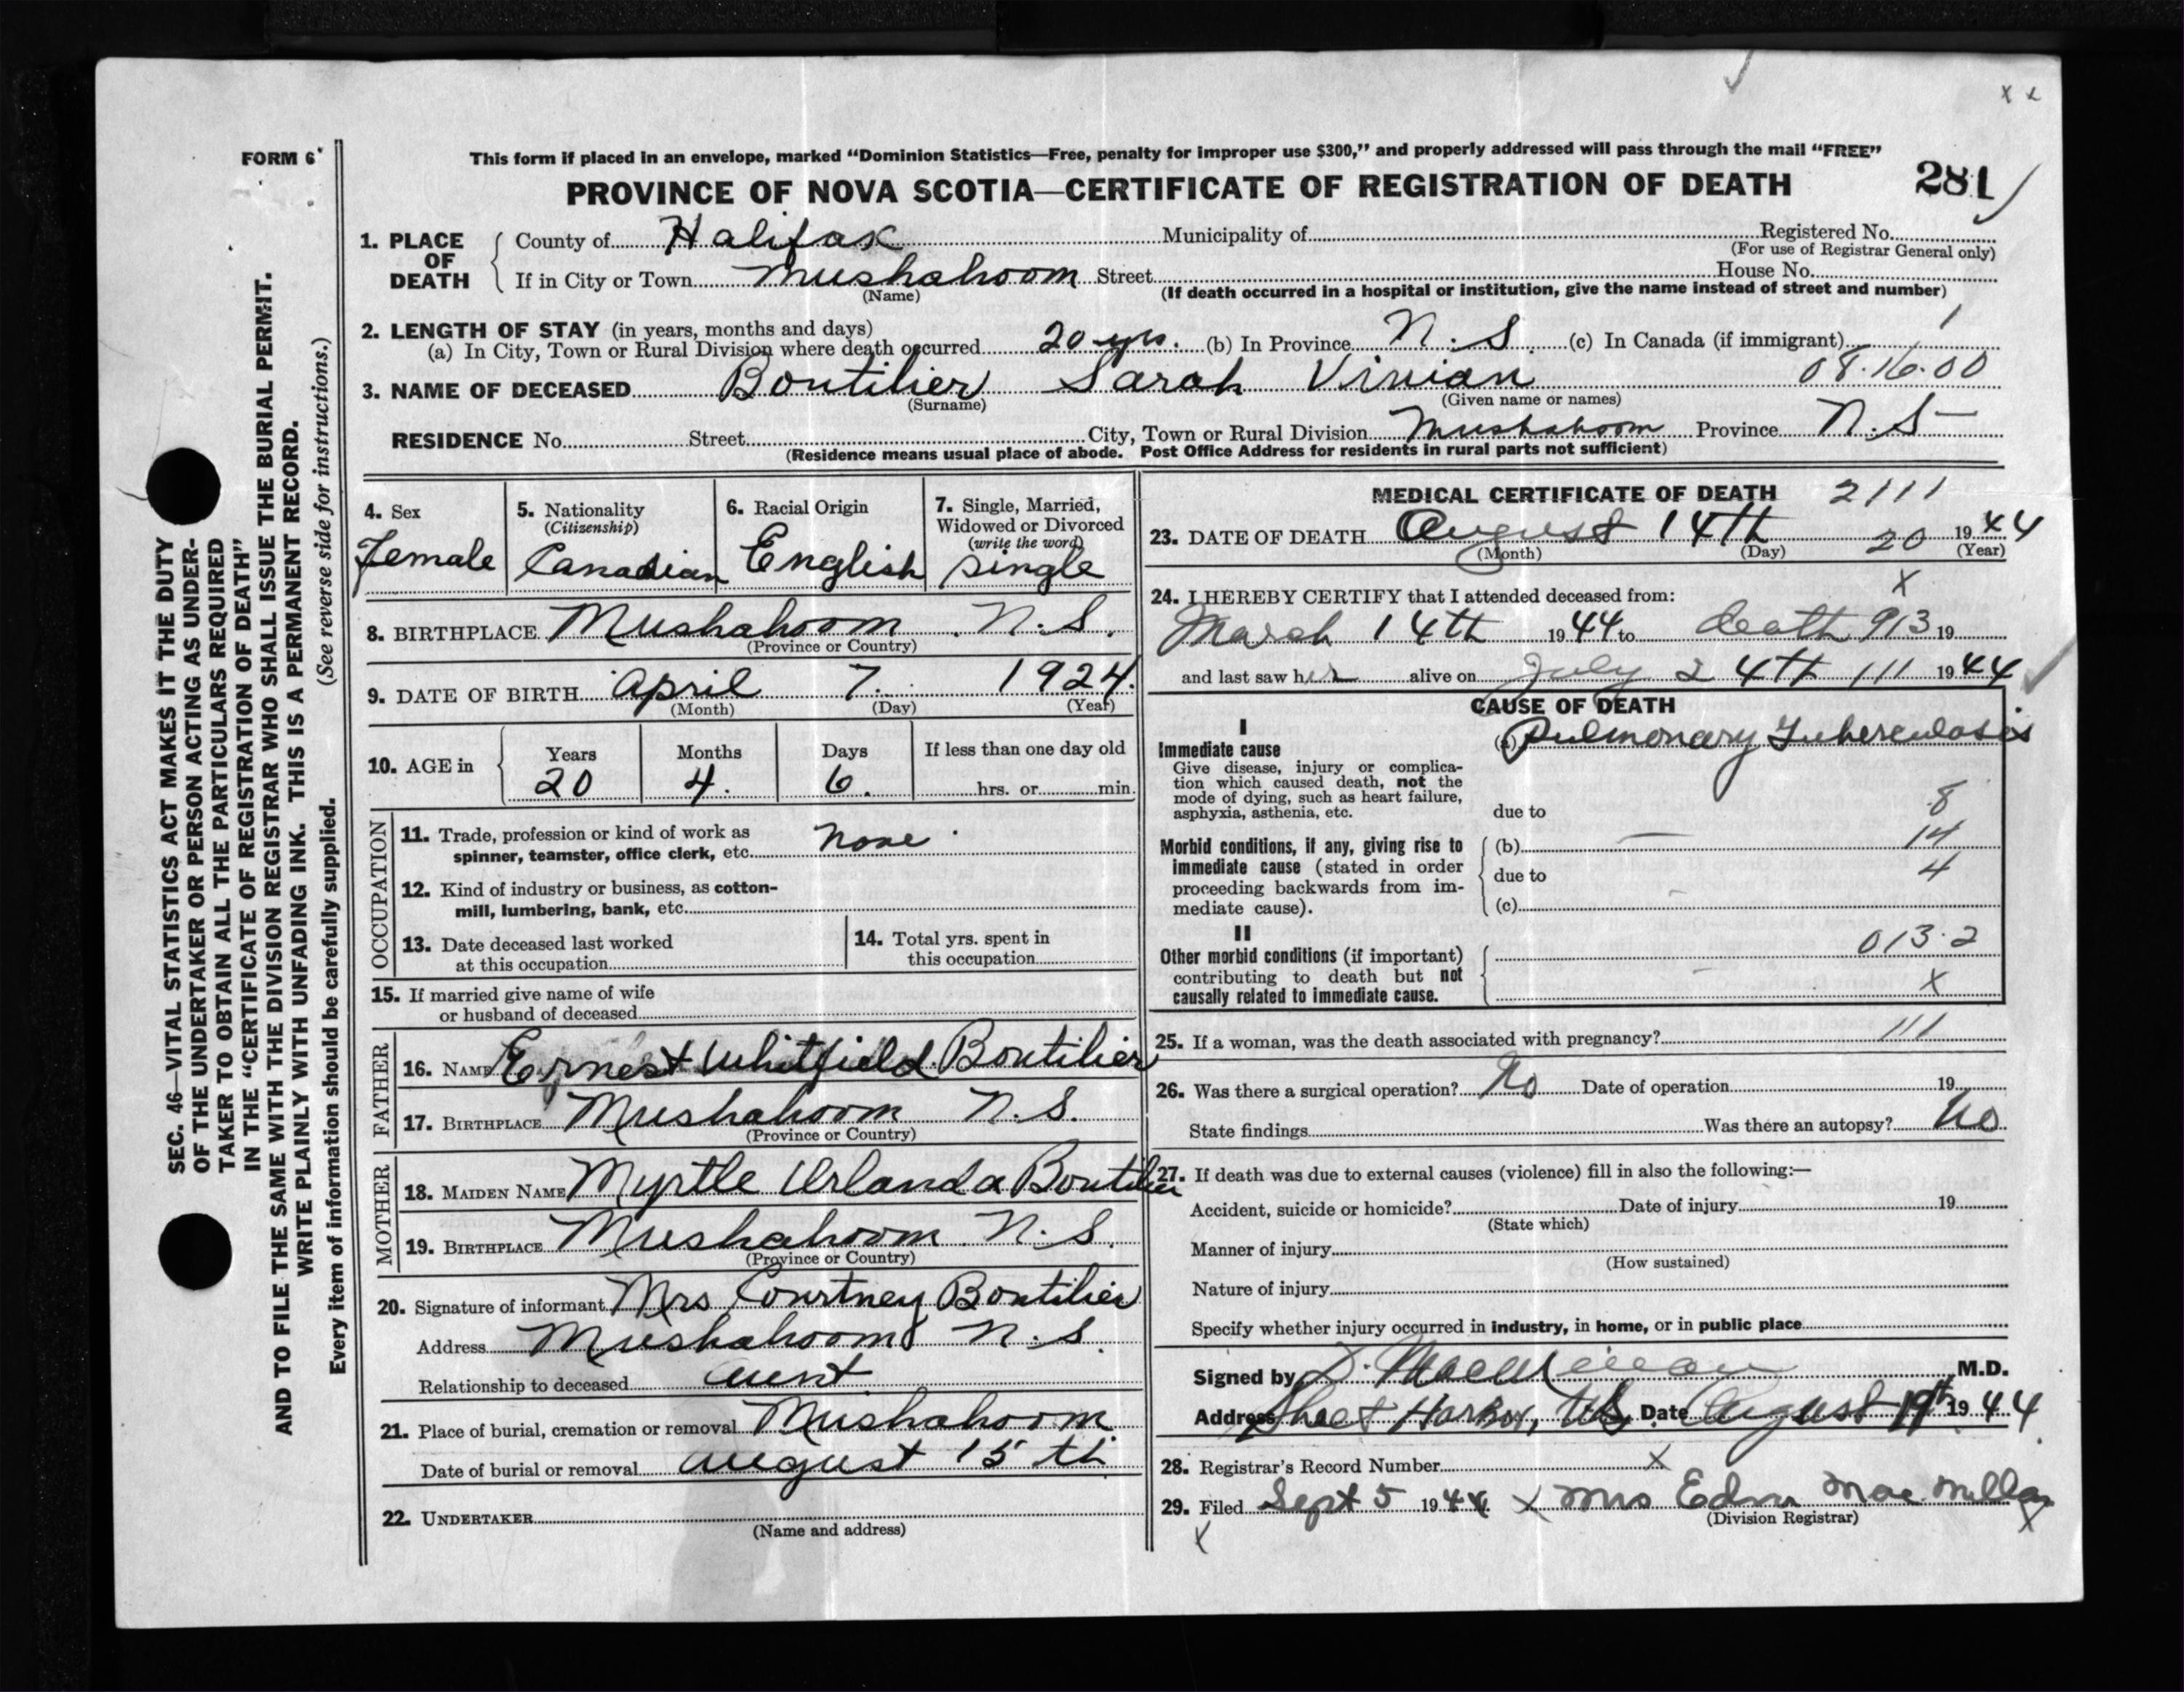 x x
FORM 6
This form if placed in an envelope, marked “Dominion Statistics—Free, penalty for improper use $300,” and properly addressed will pass through the mail “FREE”
PROVINCE OF NOVA SCOTIA—CERTIFICATE OF REGISTRATION OF DEATH
281
1. PLACE OF DEATH County of Halifax Municipality of Registered No.
(For use of Registrar General only)
If in City or Town Mushaboom Street House No.
(Name) (If death occurred in a hospital or institution, give the name instead of street and number)
2. LENGTH OF STAY (in years, months and days) 1
(a) In City, Town or Rural Division where death occurred 20 yrs. (b) In Province N.S. (c) In Canada (if immigrant)
3. NAME OF DECEASED Boutilier Sarah Vivian 08.16.00
(Surname) (Given name or names)
RESIDENCE No. Street City, Town or Rural Division Mushaboom Province N.S
(Residence means usual place of abode. Post Office Address for residents in rural parts not sufficient)
4. Sex
Female
5. Nationality
(Citizenship)
Canadian
6. Racial Origin
English
7. Single, Married,
Widowed or Divorced
(write the word)
single
8. BIRTHPLACE Mushaboom N.S.
(Province or Country)
9. DATE OF BIRTH April 7. 1924.
(Month) (Day) (Year)
10. AGE in
Years Months Days If less than one day old
20 4. 6. hrs. or min.
OCCUPATION
11. Trade, profession or kind of work as
spinner, teamster, office clerk, etc. None
12. Kind of industry or business, as cotton-
mill, lumbering, bank, etc.
13. Date deceased last worked
at this occupation
14. Total yrs. spent in
this occupation
15. If married give name of wife
or husband of deceased
FATHER
16. NAME Ernest Whitfield Boutilier
17. BIRTHPLACE Mushaboom N.S.
(Province or Country)
MOTHER
18. MAIDEN NAME Myrtle Urlanda Boutilier
19. BIRTHPLACE Mushaboom N.S.
(Province or Country)
20. Signature of informant Mrs Courtney Boutilier
Address Mushaboom N.S.
Relationship to deceased aunt
21. Place of burial, cremation or removal Mushaboom
Date of burial or removal august 15 th
22. UNDERTAKER
(Name and address)
MEDICAL CERTIFICATE OF DEATH 2111
23. DATE OF DEATH August 14th 20 1944
(Month) (Day) (Year)
x
24. I HEREBY CERTIFY that I attended deceased from:
March 14th 1944 to death 913 19
and last saw her alive on July 24th 111 1944
CAUSE OF DEATH
I
Immediate cause (a) Pulmonary Tuberculosis
Give disease, injury or complica-
tion which caused death, not the
mode of dying, such as heart failure,
asphyxia, asthenia, etc. due to 8
Morbid conditions, if any, giving rise to (b) 14
immediate cause (stated in order due to 4
proceeding backwards from im-
mediate cause). (c)
II
Other morbid conditions (if important) 013.2
contributing to death but not
causally related to immediate cause. X
25. If a woman, was the death associated with pregnancy? 111
26. Was there a surgical operation? No Date of operation 19
State findings Was there an autopsy? No
27. If death was due to external causes (violence) fill in also the following:—
Accident, suicide or homicide? Date of injury 19
(State which)
Manner of injury
(How sustained)
Nature of injury
Specify whether injury occurred in industry, in home, or in public place
Signed by M.D.
Address Sheet Harbor, N.S. Date August 19th 1944
28. Registrar's Record Number X
29. Filed Sept 5 1944. X Mrs Edna MacMillan
(Division Registrar)
X X
SEC. 46—VITAL STATISTICS ACT MAKES IT THE DUTY
OF THE UNDERTAKER OR PERSON ACTING AS UNDER-
TAKER TO OBTAIN ALL THE PARTICULARS REQUIRED
IN THE “CERTIFICATE OF REGISTRATION OF DEATH”
AND TO FILE THE SAME WITH THE DIVISION REGISTRAR WHO SHALL ISSUE THE BURIAL PERMIT.
WRITE PLAINLY WITH UNFADING INK. THIS IS A PERMANENT RECORD.
Every item of information should be carefully supplied. (See reverse side for instructions.)